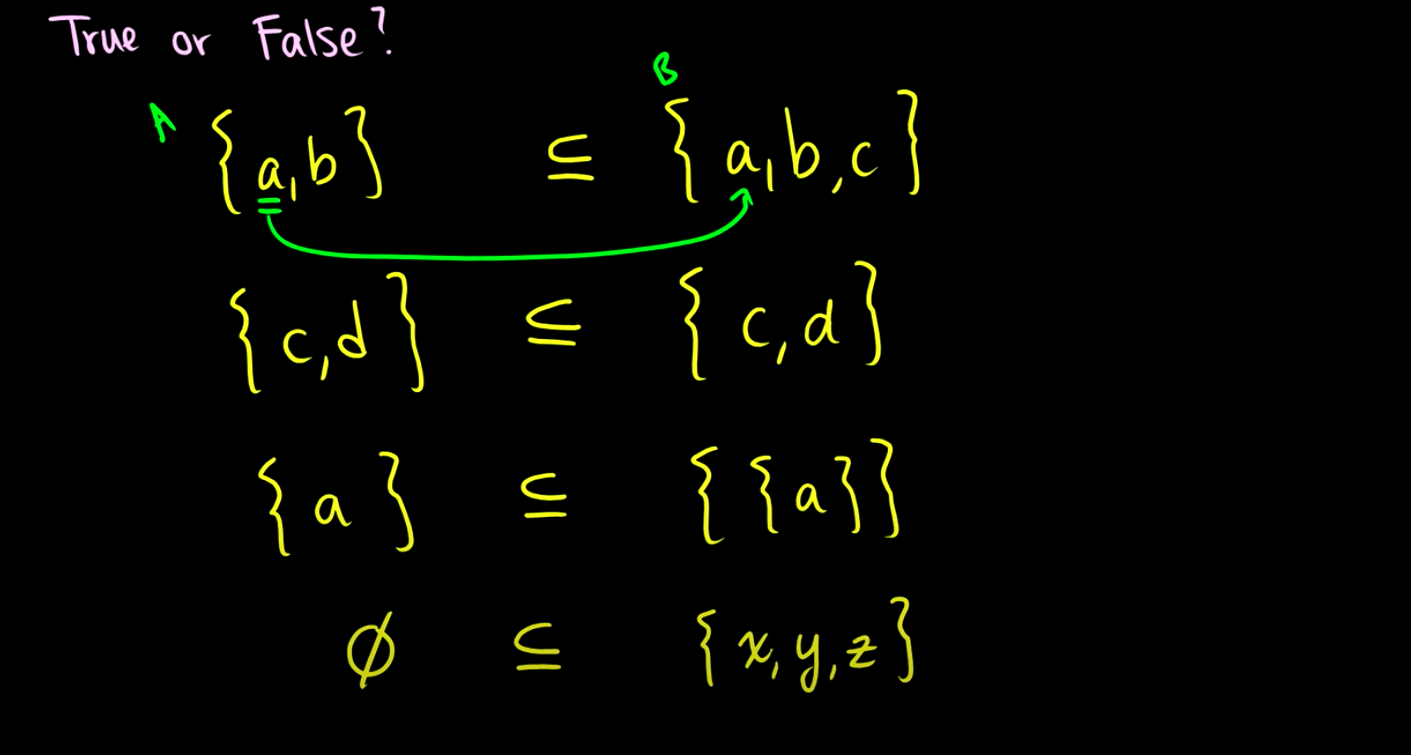 True or False?
A {a,b} ⊆ B {a,b,c}
{c,d} ⊆ {c,d}
{a} ⊆ {{a}}
∅ ⊆ {x,y,z}